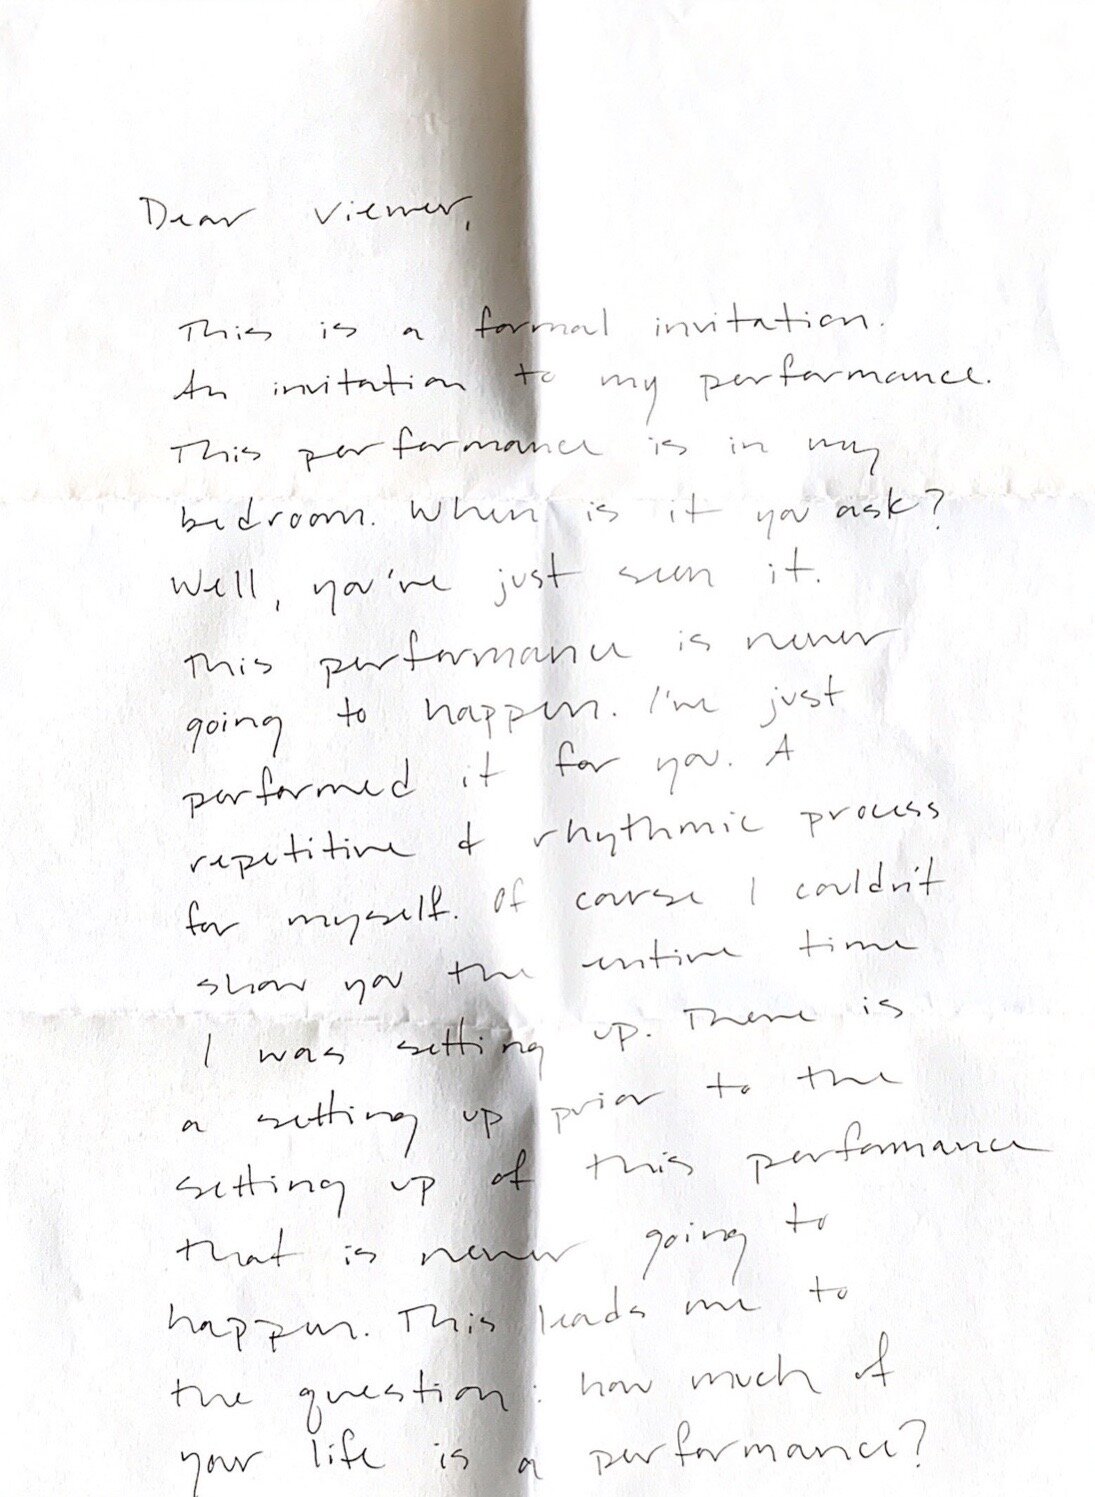 Dear Viewer,
This is a formal invitation.
An invitation to my performance.
This performance is in my
bedroom. When is it you ask?
Well, you've just seen it.
This performance is never
going to happen. I've just
performed it for you. A
repetitive & rhythmic process
for myself. Of course I couldn't
show you the entire time
I was setting up. There is
a setting up prior to the
setting up of this performance
that is never going to
happen. This leads me to
the question: how much of
your life is a performance?